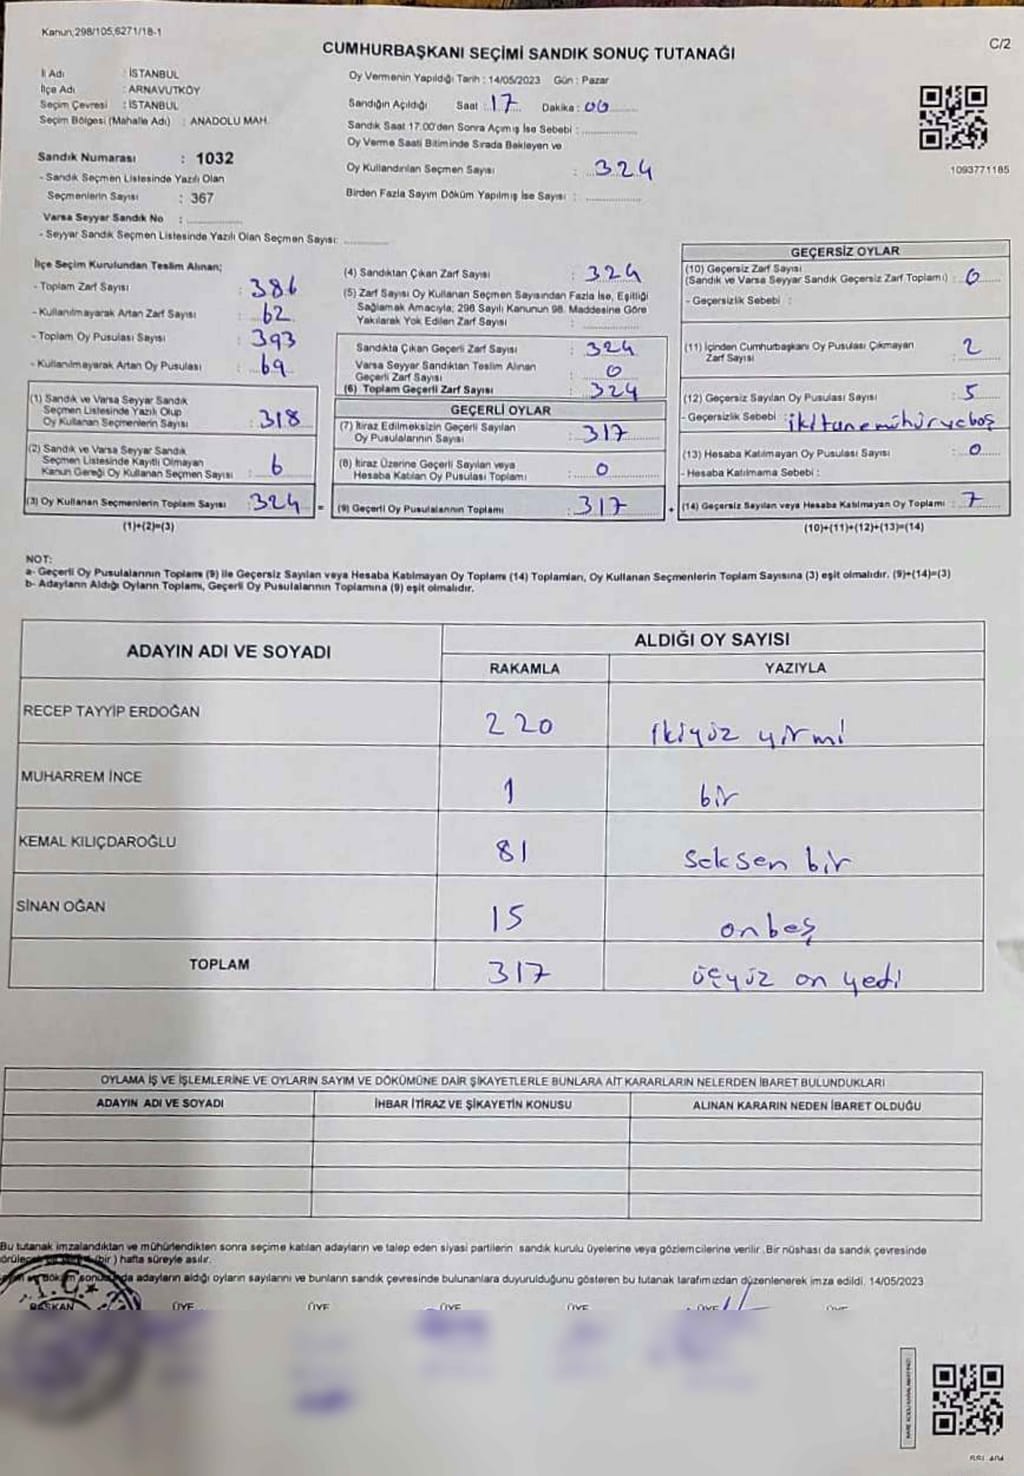 Kanun;298/105,6271/18-1
C/2
CUMHURBAŞKANI SEÇİMİ SANDIK SONUÇ TUTANAĞI
İl Adı : İSTANBUL
İlçe Adı : ARNAVUTKÖY
Seçim Çevresi : İSTANBUL
Seçim Bölgesi (Mahalle Adı) : ANADOLU MAH.
Sandık Numarası : 1032
- Sandık Seçmen Listesinde Yazılı Olan
Seçmenlerin Sayısı : 367
Varsa Seyyar Sandık No :
- Seyyar Sandık Seçmen Listesinde Yazılı Olan Seçmen Sayısı:
Oy Vermenin Yapıldığı Tarih : 14/05/2023 Gün : Pazar
Sandığın Açıldığı Saat : 17 Dakika : 00
Sandık Saat 17.00'den Sonra Açılmış İse Sebebi :
Oy Verme Saati Bitiminde Sırada Bekleyen ve
Oy Kullandırılan Seçmen Sayısı : 324
Birden Fazla Sayım Döküm Yapılmış İse Sayısı :
1093771185
İlçe Seçim Kurulundan Teslim Alınan;
- Toplam Zarf Sayısı : 386
- Kullanılmayarak Artan Zarf Sayısı : 62
- Toplam Oy Pusulası Sayısı : 393
- Kullanılmayarak Artan Oy Pusulası : 69
(1) Sandık ve Varsa Seyyar Sandık
Seçmen Listesinde Yazılı Olup
Oy Kullanan Seçmenlerin Sayısı : 318
(2) Sandık ve Varsa Seyyar Sandık
Seçmen Listesinde Kayıtlı Olmayan
Kanun Gereği Oy Kullanan Seçmen Sayısı : 6
(3) Oy Kullanan Seçmenlerin Toplam Sayısı : 324 =
(1)+(2)=(3)
(4) Sandıktan Çıkan Zarf Sayısı : 324
(5) Zarf Sayısı Oy Kullanan Seçmen Sayısından Fazla İse, Eşitliği
Sağlamak Amacıyla; 298 Sayılı Kanunun 98. Maddesine Göre
Yakılarak Yok Edilen Zarf Sayısı :
Sandıkta Çıkan Geçerli Zarf Sayısı : 324
Varsa Seyyar Sandıktan Teslim Alınan
Geçerli Zarf Sayısı : 0
(6) Toplam Geçerli Zarf Sayısı : 324
GEÇERLİ OYLAR
(7) İtiraz Edilmeksizin Geçerli Sayılan
Oy Pusulalarının Sayısı : 317
(8) İtiraz Üzerine Geçerli Sayılan veya
Hesaba Katılan Oy Pusulası Toplamı : 0
(9) Geçerli Oy Pusulalarının Toplamı : 317 +
GEÇERSİZ OYLAR
(10) Geçersiz Zarf Sayısı
(Sandık ve Varsa Seyyar Sandık Geçersiz Zarf Toplamı) : 0
- Geçersizlik Sebebi :
(11) İçinden Cumhurbaşkanı Oy Pusulası Çıkmayan
Zarf Sayısı : 2
(12) Geçersiz Sayılan Oy Pusulası Sayısı : 5
- Geçersizlik Sebebi : iki tane mühür ve boş
(13) Hesaba Katılmayan Oy Pusulası Sayısı : 0
- Hesaba Katılmama Sebebi :
(14) Geçersiz Sayılan veya Hesaba Katılmayan Oy Toplamı : 7
(10)+(11)+(12)+(13)=(14)
NOT:
a- Geçerli Oy Pusulalarının Toplamı (9) ile Geçersiz Sayılan veya Hesaba Katılmayan Oy Toplamı (14) Toplamları, Oy Kullanan Seçmenlerin Toplam Sayısına (3) eşit olmalıdır. (9)+(14)=(3)
b- Adayların Aldığı Oyların Toplamı, Geçerli Oy Pusulalarının Toplamına (9) eşit olmalıdır.
ADAYIN ADI VE SOYADI
ALDIĞI OY SAYISI
RAKAMLA YAZIYLA
RECEP TAYYİP ERDOĞAN 220 ikiyüz yirmi
MUHARREM İNCE 1 bir
KEMAL KILIÇDAROĞLU 81 seksen bir
SİNAN OĞAN 15 onbeş
TOPLAM 317 üçyüz on yedi
OYLAMA İŞ VE İŞLEMLERİNE VE OYLARIN SAYIM VE DÖKÜMÜNE DAİR ŞİKAYETLERLE BUNLARA AİT KARARLARIN NELERDEN İBARET BULUNDUKLARI
ADAYIN ADI VE SOYADI İHBAR İTİRAZ VE ŞİKAYETİN KONUSU ALINAN KARARIN NEDEN İBARET OLDUĞU
Bu tutanak imzalandıktan ve mühürlendikten sonra seçime katılan adayların ve talep eden siyasi partilerin sandık kurulu üyelerine veya gözlemcilerine verilir. Bir nüshası da sandık çevresinde
(bir) hafta süreyle asılır.
adayların aldığı oyların sayılarını ve bunların sandık çevresinde bulunanlara duyurulduğunu gösteren bu tutanak tarafımızdan düzenlenerek imza edildi. 14/05/2023
T.C.
BAŞKAN ÜYE ÜYE ÜYE ÜYE ÜYE ÜYE